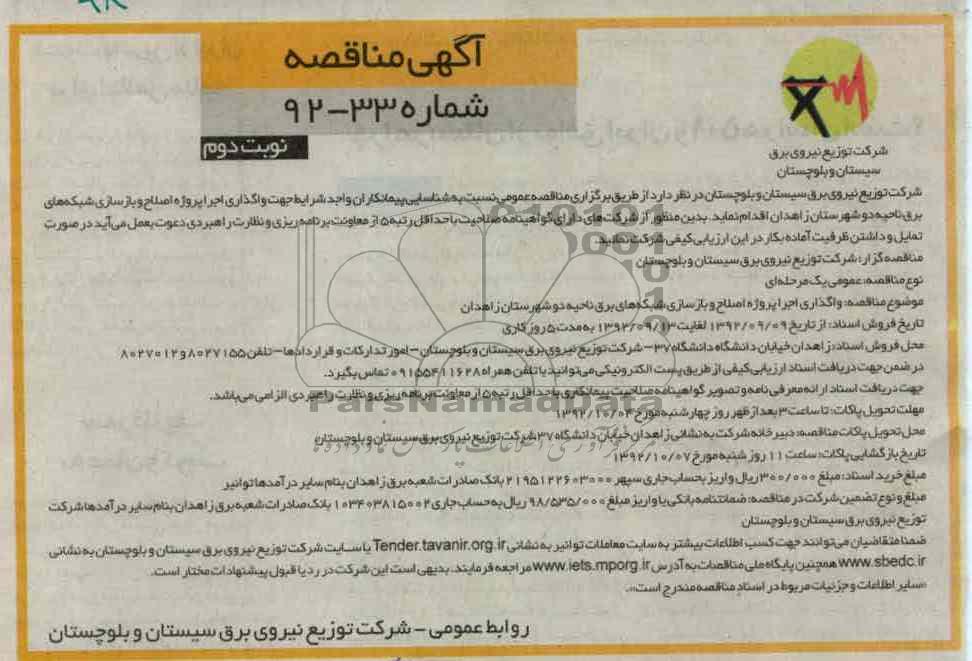 آگهی مناقصه
شماره ۳۳-۹۲
نوبت دوم
شرکت توزیع نیروی برق
سیستان و بلوچستان
شرکت توزیع نیروی برق سیستان و بلوچستان در نظر دارد از طریق برگزاری مناقصه عمومی نسبت به شناسایی پیمانکاران واجد شرایط جهت واگذاری اجرا پروژه اصلاح و بازسازی شبکه‌های
برق ناحیه دو شهرستان زاهدان اقدام نماید. بدین منظور از شرکت‌های دارای گواهینامه صلاحیت با حداقل رتبه ۵ از معاونت برنامه ریزی و نظارت راهبردی دعوت بعمل می‌آید در صورت
تمایل و داشتن ظرفیت آماده بکار در این ارزیابی کیفی شرکت نمائید.
مناقصه گزار: شرکت توزیع نیروی برق سیستان و بلوچستان
نوع مناقصه: عمومی یک مرحله‌ای
موضوع مناقصه: واگذاری اجرا پروژه اصلاح و بازسازی شبکه‌های برق ناحیه دو شهرستان زاهدان
تاریخ فروش اسناد: از تاریخ ۱۳۹۲/۰۹/۰۹ لغایت ۱۳۹۲/۰۹/۱۳ به مدت ۵ روز کاری
محل فروش اسناد: زاهدان خیابان دانشگاه دانشگاه ۳۷ – شرکت توزیع نیروی برق سیستان و بلوچستان – امور تدارکات و قراردادها – تلفن ۸۰۲۷۱۵۵ و ۸۰۲۷۰۱۲
در ضمن جهت دریافت اسناد ارزیابی کیفی از طریق پست الکترونیکی می‌توانید با تلفن همراه ۰۹۱۵۵۴۱۱۶۲۸ تماس بگیرد.
جهت دریافت اسناد ارائه معرفی نامه و تصویر گواهینامه صلاحیت پیمانکاری با حداقل رتبه ۵ از معاونت برنامه ریزی و نظارت راهبردی الزامی می‌باشد.
مهلت تحویل پاکات: تا ساعت ۳ بعد از ظهر روز چهارشنبه مورخ ۱۳۹۲/۱۰/۰۴
محل تحویل پاکات مناقصه: دبیرخانه شرکت به نشانی زاهدان خیابان دانشگاه ۳۷ شرکت توزیع نیروی برق سیستان و بلوچستان
تاریخ بازگشایی پاکات: ساعت ۱۱ روز شنبه مورخ ۱۳۹۲/۱۰/۰۷
مبلغ خرید اسناد: مبلغ ۳۰۰/۰۰۰ ریال واریز بحساب جاری سپهر ۲۱۹۵۱۲۲۶۰۳۰۰۰ بانک صادرات شعبه برق زاهدان بنام سایر درآمدها توانیر
مبلغ و نوع تضمین شرکت در مناقصه: ضمانتنامه بانکی یا واریز مبلغ ۹۸/۵۳۵/۰۰۰ ریال به حساب جاری ۱۰۳۴۰۳۸۱۵۰۰۲ بانک صادرات شعبه برق زاهدان بنام سایر درآمدها شرکت
توزیع نیروی برق سیستان و بلوچستان
ضمنا متقاضیان می‌توانند جهت کسب اطلاعات بیشتر به سایت معاملات توانیر به نشانی Tender.tavanir.org.ir یا سایت شرکت توزیع نیروی برق سیستان و بلوچستان به نشانی
www.sbedc.ir همچنین پایگاه ملی مناقصات به آدرس www.iets.mporg.ir مراجعه فرمایند. بدیهی است این شرکت در رد یا قبول پیشنهادات مختار است.
«سایر اطلاعات و جزئیات مربوط در اسناد مناقصه مندرج است».
روابط عمومی – شرکت توزیع نیروی برق سیستان و بلوچستان
ParsNamadData